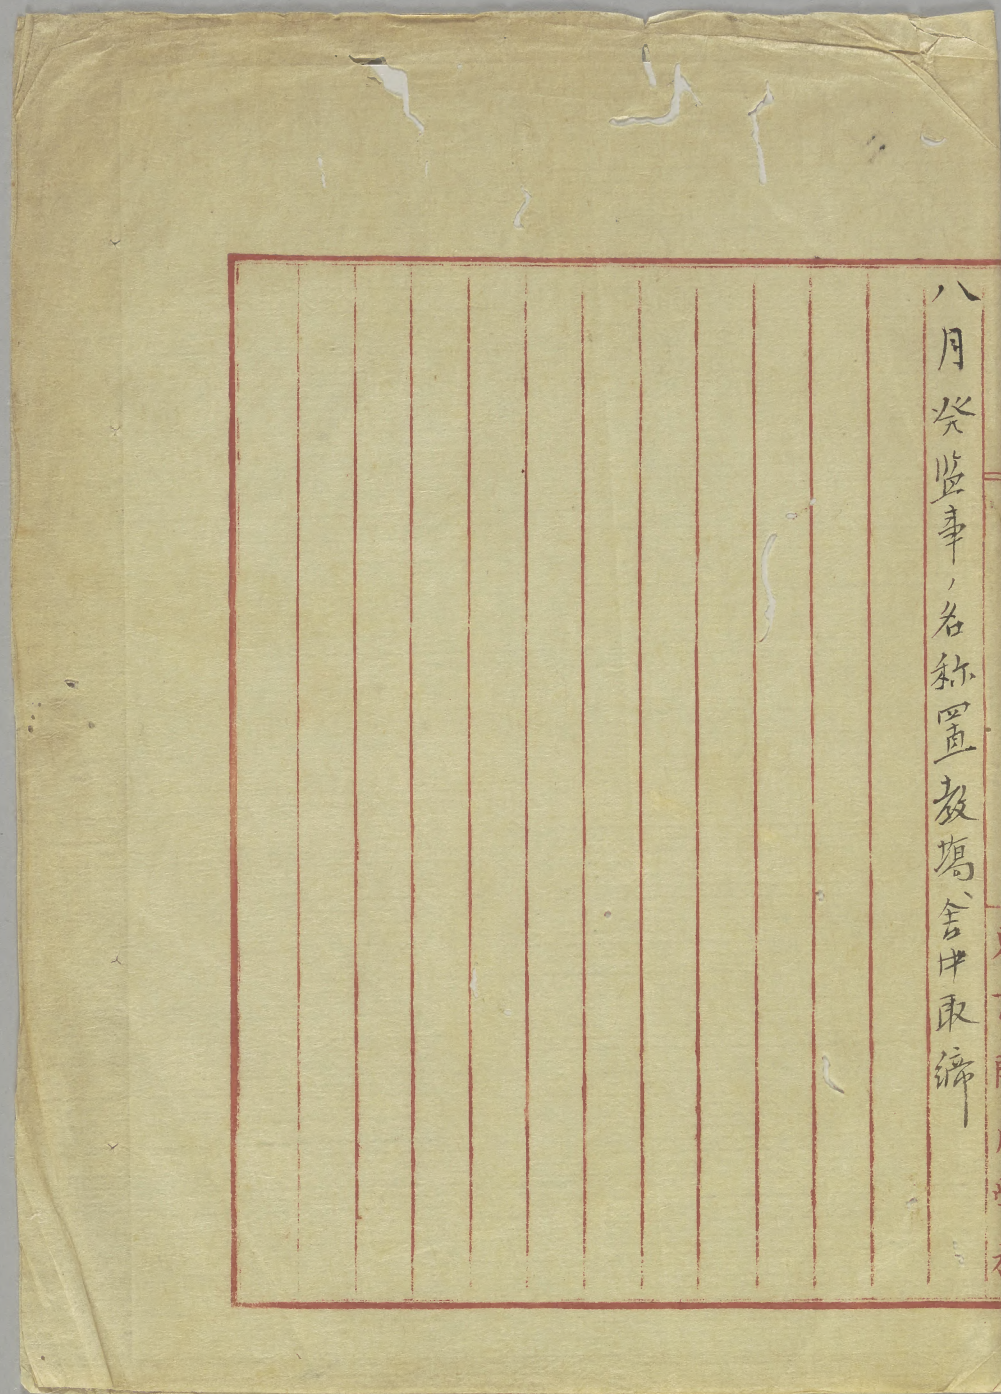 八月発監事ノ名称置教場、舎中取締